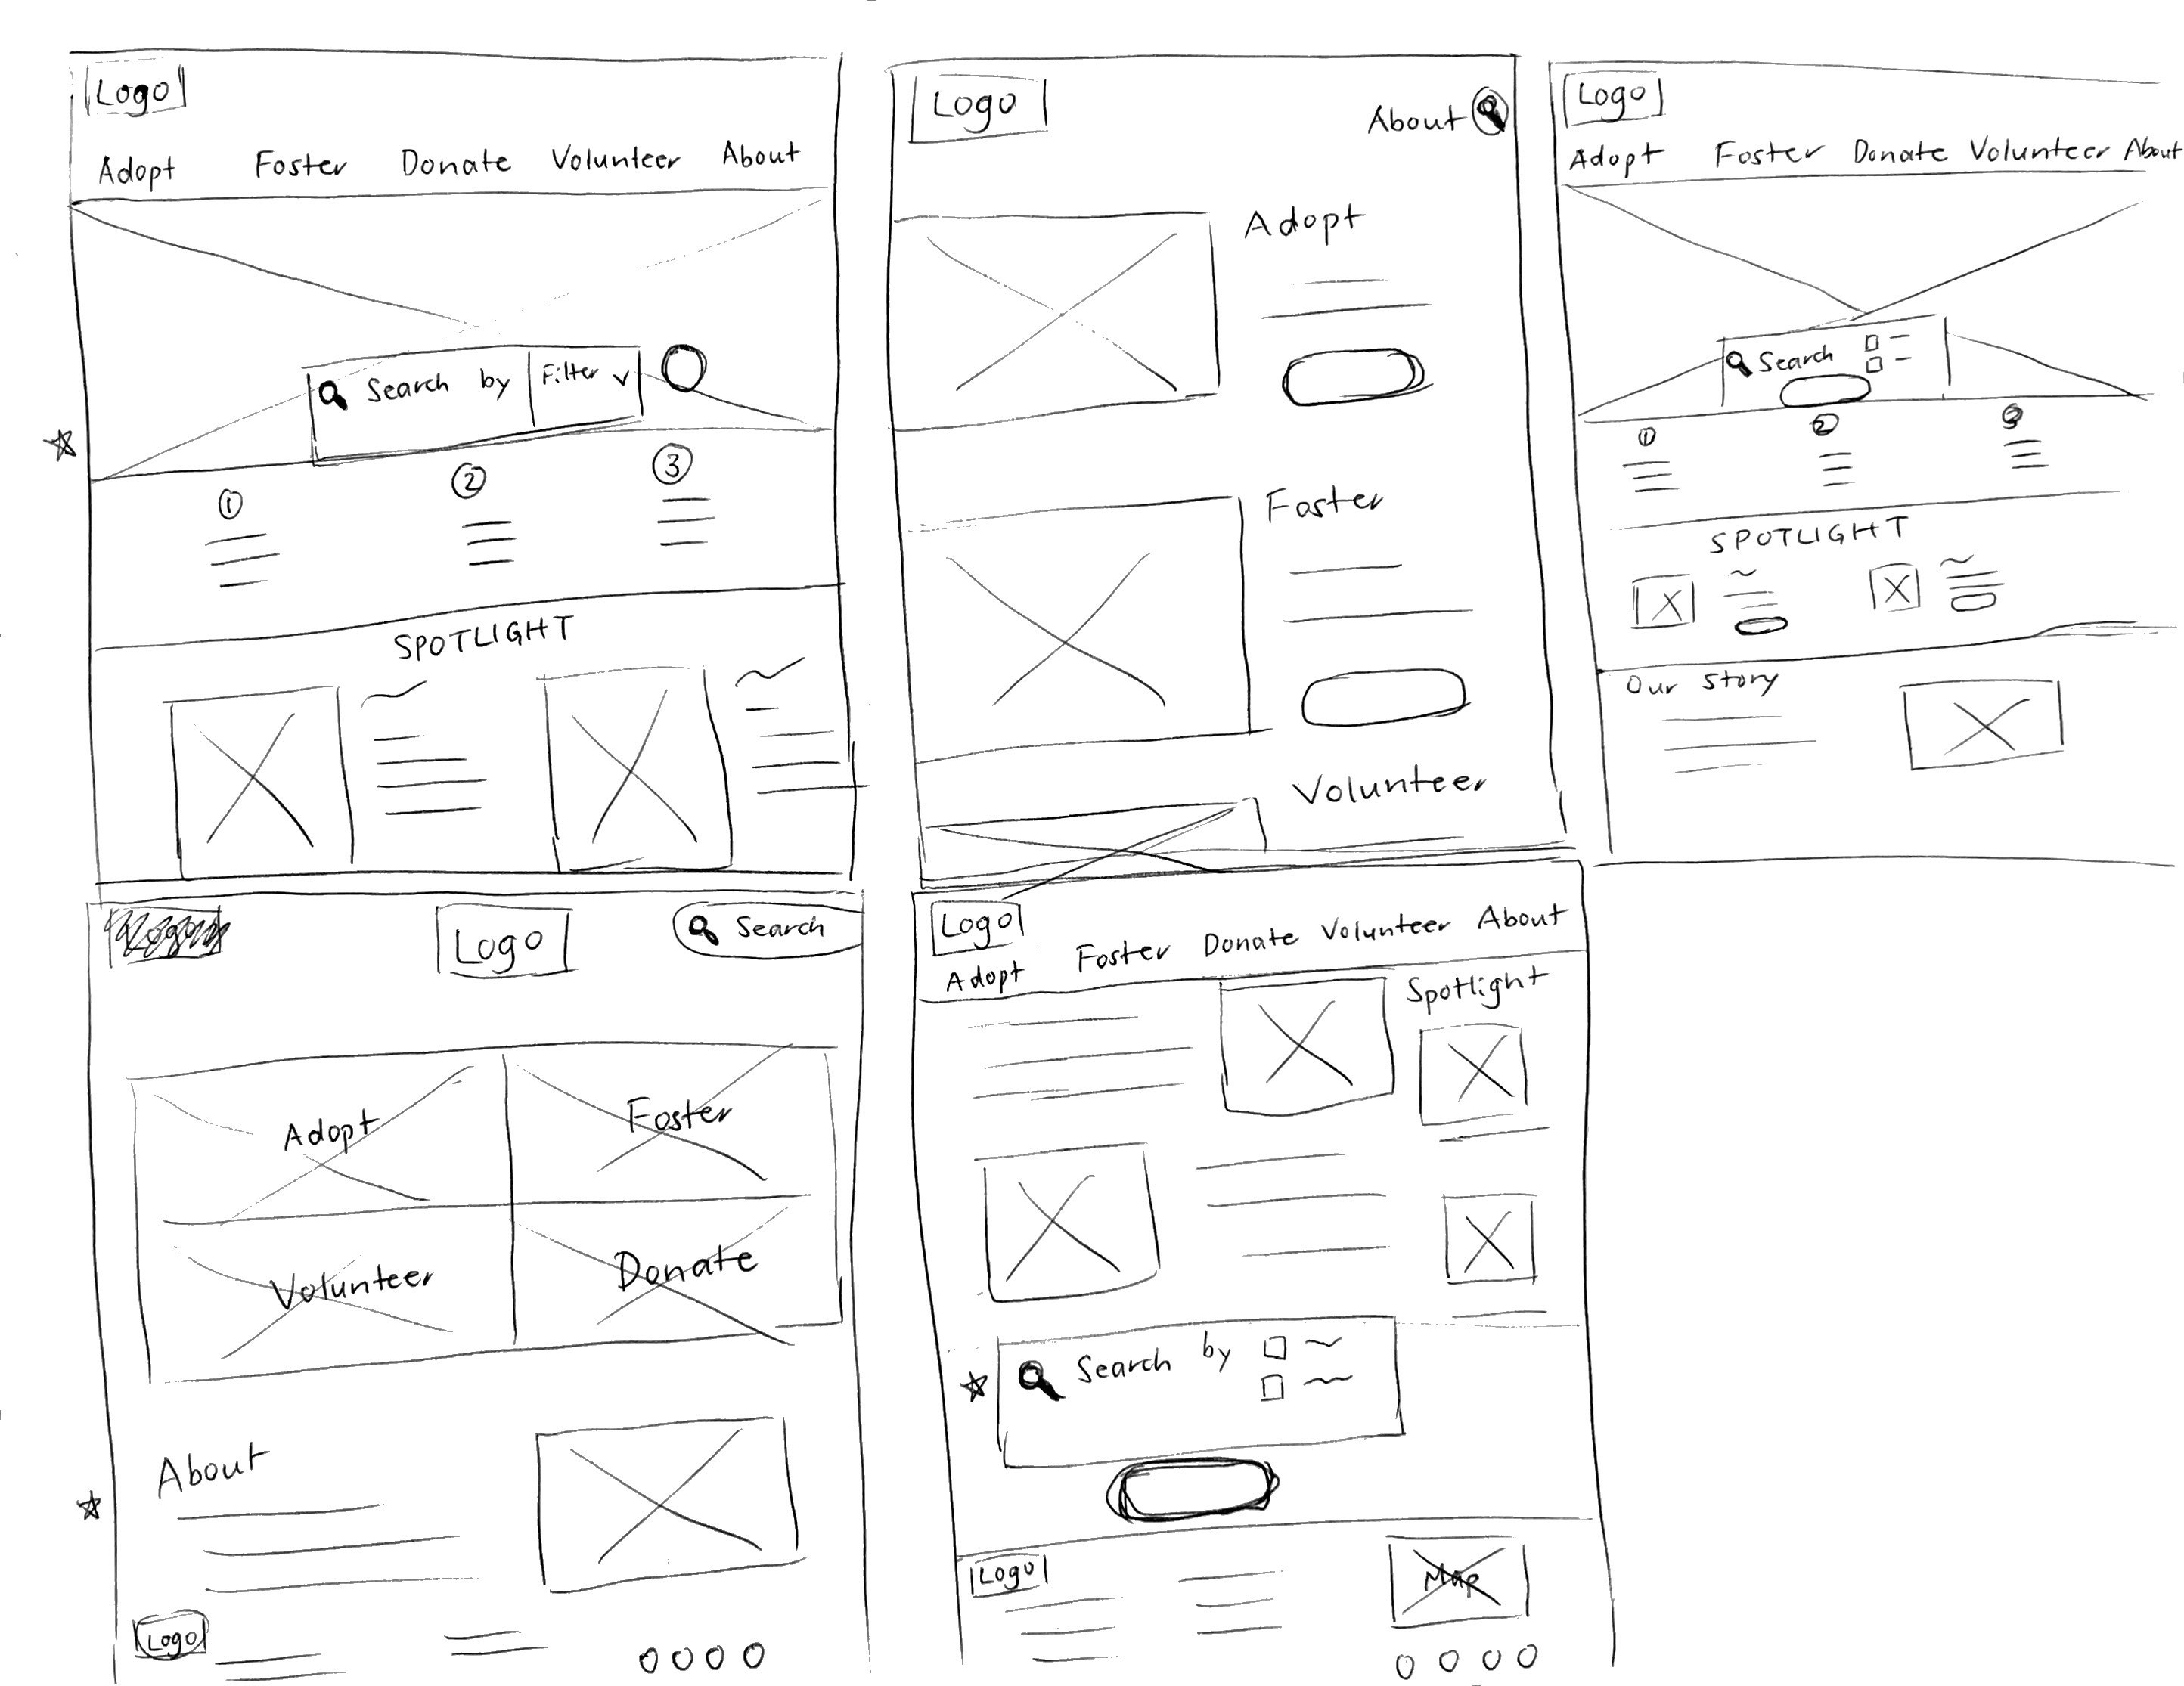 Logo
Adopt Foster Donate Volunteer About
Search by Filter
1 2 3
SPOTLIGHT
Logo
About
Adopt
Foster
Volunteer
Logo
Adopt Foster Donate Volunteer About
Search
1 2 3
SPOTLIGHT
Our Story
Logo
Search
Adopt
Foster
Volunteer
Donate
About
Logo
Logo
Adopt Foster Donate Volunteer About
Spotlight
Search by
Logo
Map